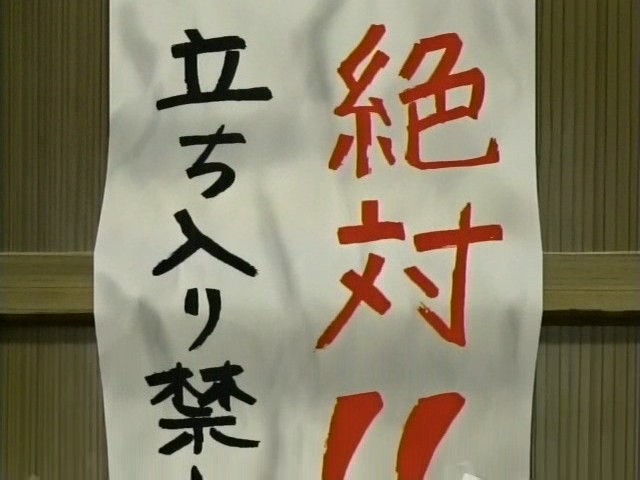 絶対!!
立ち入り禁